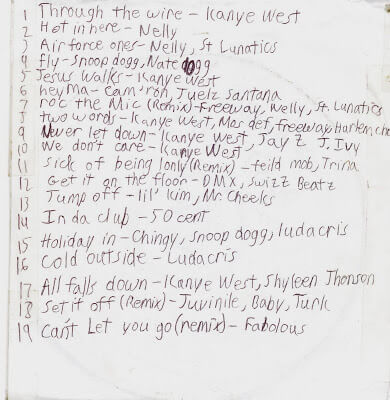 1 Through the wire - Kanye West
2 Hot in here - Nelly
3 Air force ones - Nelly, St Lunatics
4 fly - Snoop dogg, Nate Dogg
5 Jesus Walks - Kanye West
6 hey Ma - Cam'ron, Juelz Santana
7 roc the Mic (Remix) - Freeway, Nelly, St. Lunatics
8 two words - Kanye West, Mos def, freeway, Harlem cho
9 Never let down - Kanye West, Jay Z J. Ivy
10 We don't care - Kanye West
11 Sick of being lonly (Remix) - feild mob, Trina
12 Get it on the floor - DMX, Swizz Beatz
13 Jump off - lil' Kim, Mr. Cheeks
14 In da club - 50 cent
15 Holiday in - Chingy, Snoop dogg, ludacris
16 Cold outside - Ludacris
17 All falls down - Kanye West, Shyleen Jhonson
18 Set it off (Remix) - Juvinile, Baby, Turk
19 Can't Let you go (remix) - Fabolous